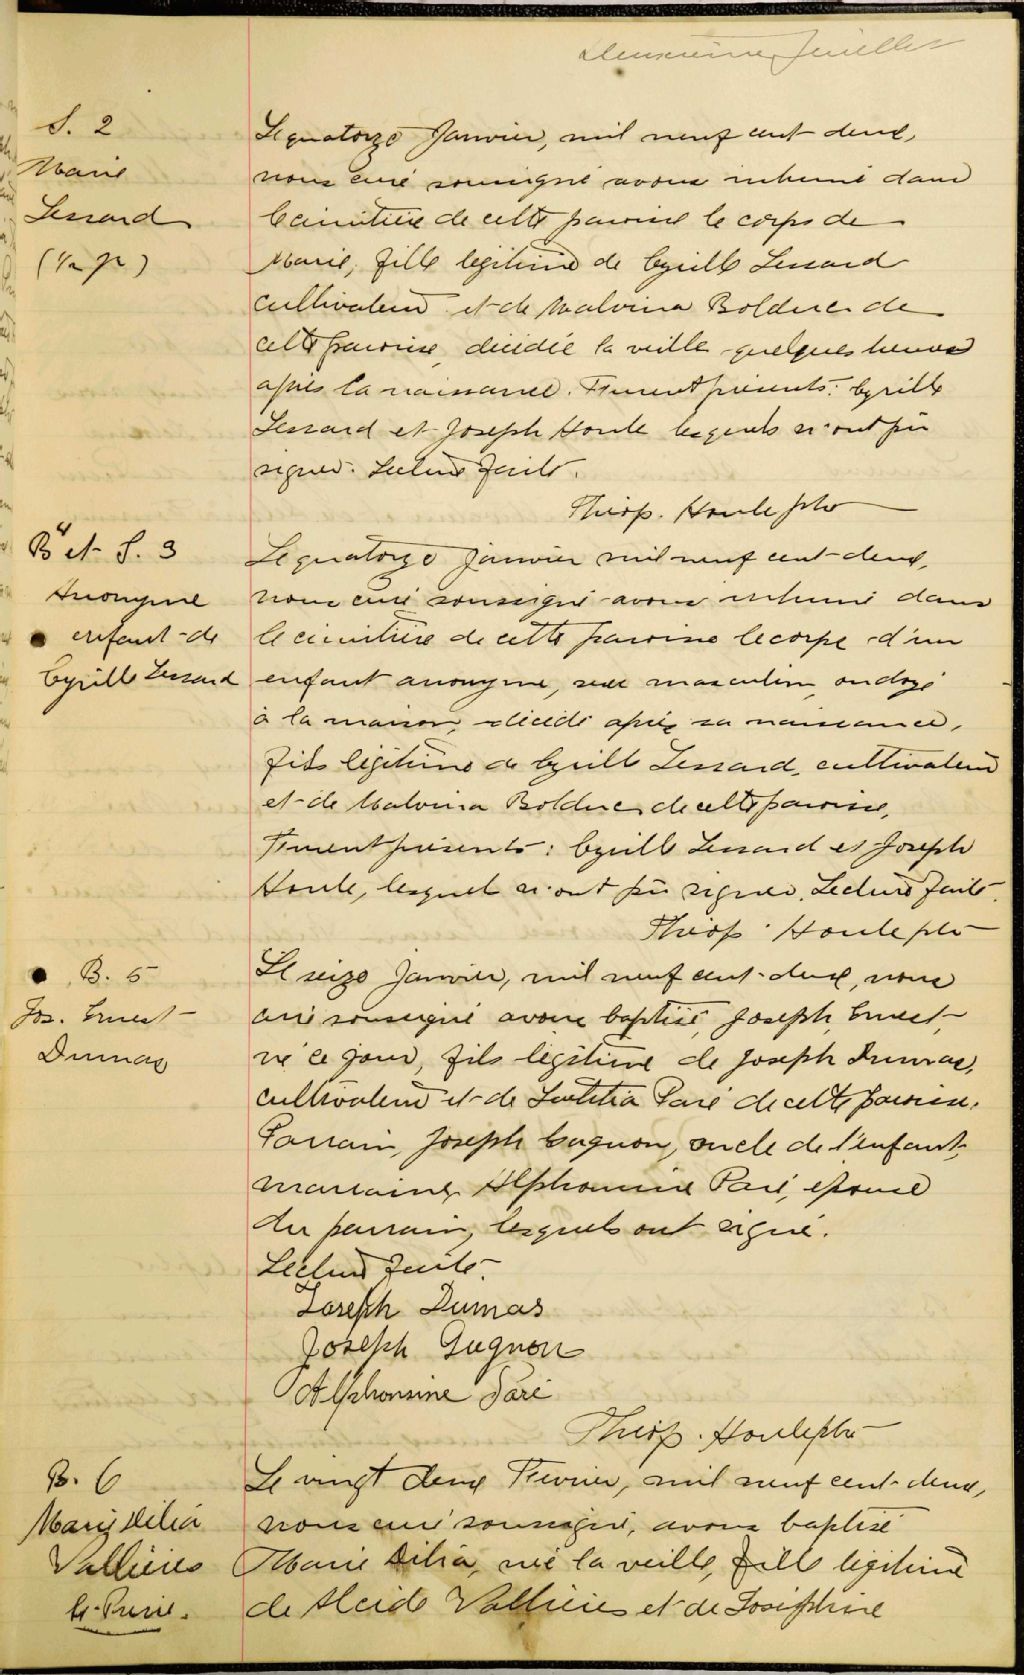 Deuxième feuillet
S. 2
Marie
Lessard
Le quatorze Janvier, mil neuf cent deux,
nous curé soussigné avons inhumé dans
le cimitière de cette paroisse le corps de
Marie, fille légitime de Cyrille Lessard
cultivateur et de Malvina Bolduc de
cette paroisse, décédée la veille quelques heures
après la naissance. Furent présents: Cyrille
Lessard et Joseph Houle lesquels n'ont pû
signer. Lecture faite.
Théop. Houle ptre
B 4 et S. 3
Anonyme
enfant de
Cyrille Lessard
Le quatorze Janvier mil neuf cent deux,
nous curé soussigné avons inhumé dans
le cimitière de cette paroisse le corps d'un
enfant anonyme, sexe masculin, ondoyé
à la maison, décédé après sa naissance,
fils légitime de Cyrille Lessard, cultivateur
et de Malvina Bolduc, de cette paroisse,
Furent présents: Cyrille Lessard et Joseph
Houle, lesquels n'ont pû signer. Lecture faite.
Théop. Houle ptre
B. 5
Jos. Ernest
Dumas
Le seize Janvier, mil neuf cent deux, nous
curé soussigné avons baptisé, Joseph Ernest,
né ce jour, fils légitime de Joseph Dumas,
cultivateur et de Lœtitia Paré de cette paroisse.
Parrain, Joseph Gagnon, oncle de l'enfant,
marraine, Alphonsine Paré, épouse
du parrain, lesquels ont signé.
Lecture faite.
Joseph Dumas
Joseph Gagnon
Alphonsine Paré
Théop. Houle ptre
B. 6
Marie Délia
Vallières
Le vingt deux Février, mil neuf cent deux,
nous curé soussigné, avons baptisé
Marie Délia, née la veille, fille légitime
de Alcide Vallières et de Joséphine